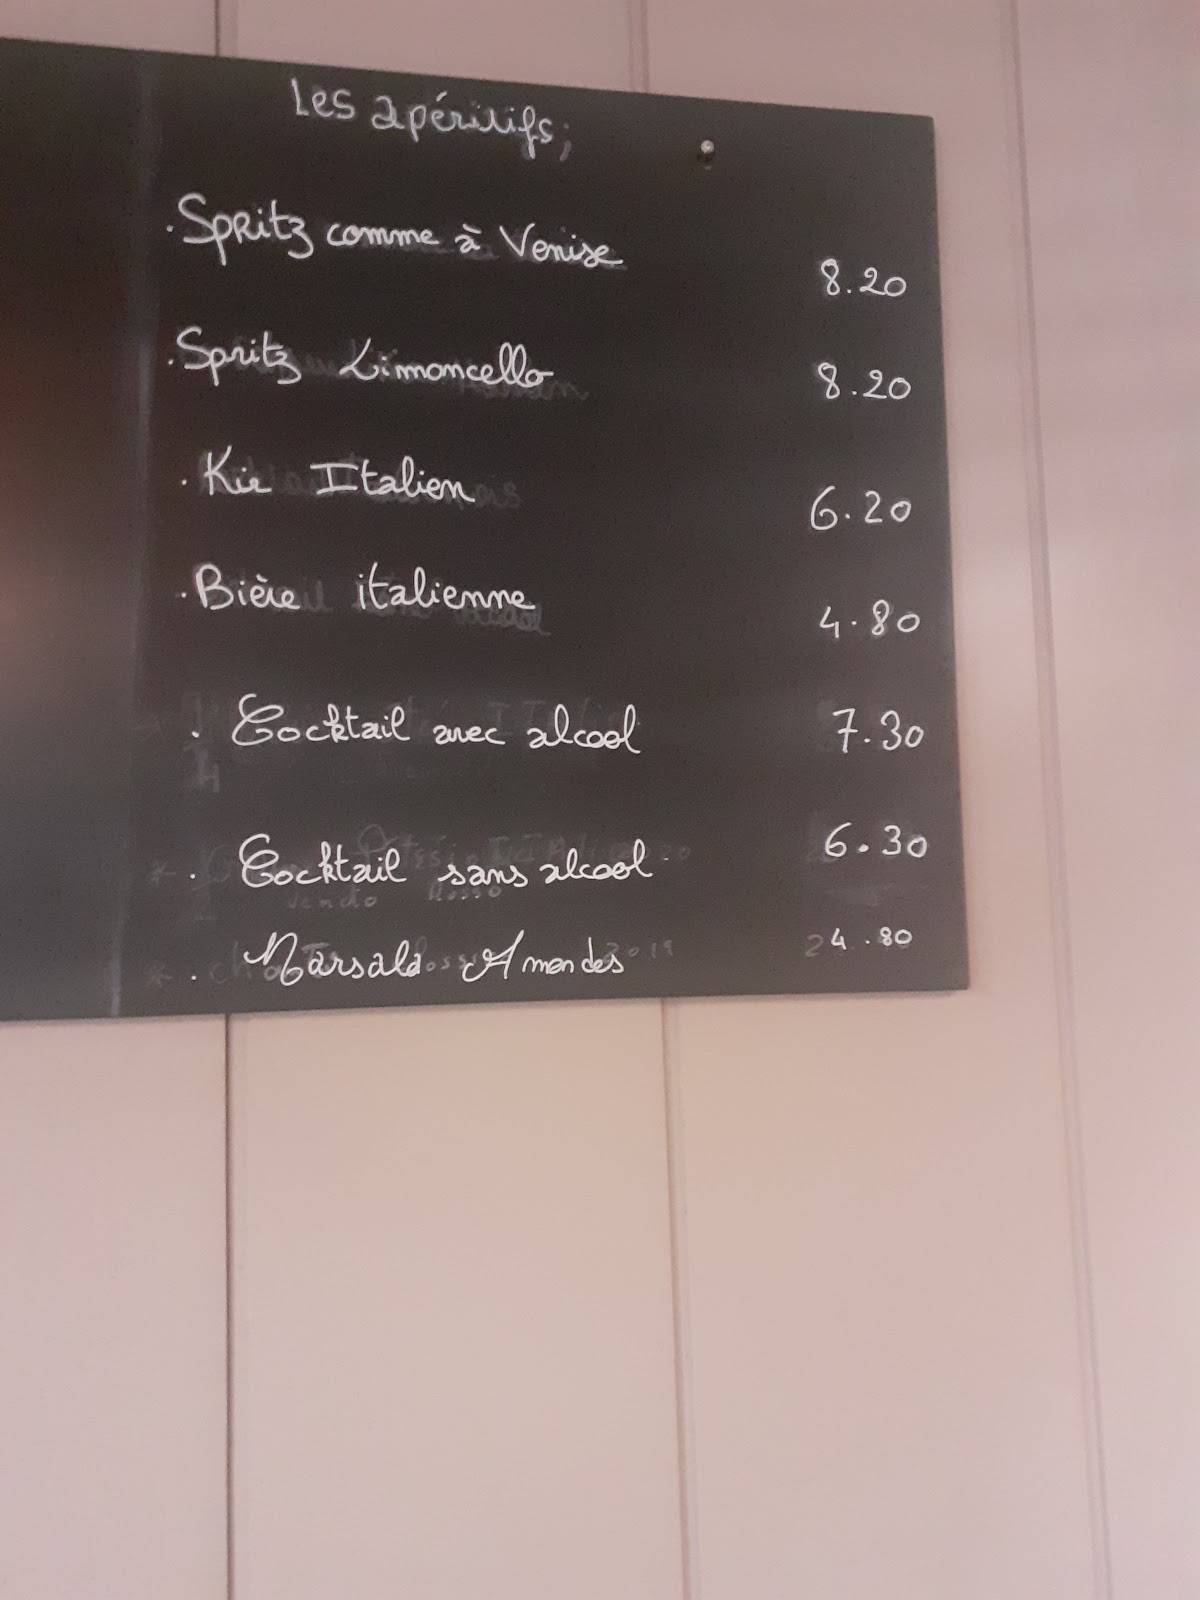 Les apéritifs;
. Spritz comme à Venise 8.20
. Spritz Limoncello 8.20
. Kir Italien 6.20
. Bière italienne 4.80
. Cocktail avec alcool 7.30
. Cocktail sans alcool 6.30
. Marsala Amandes 4.80